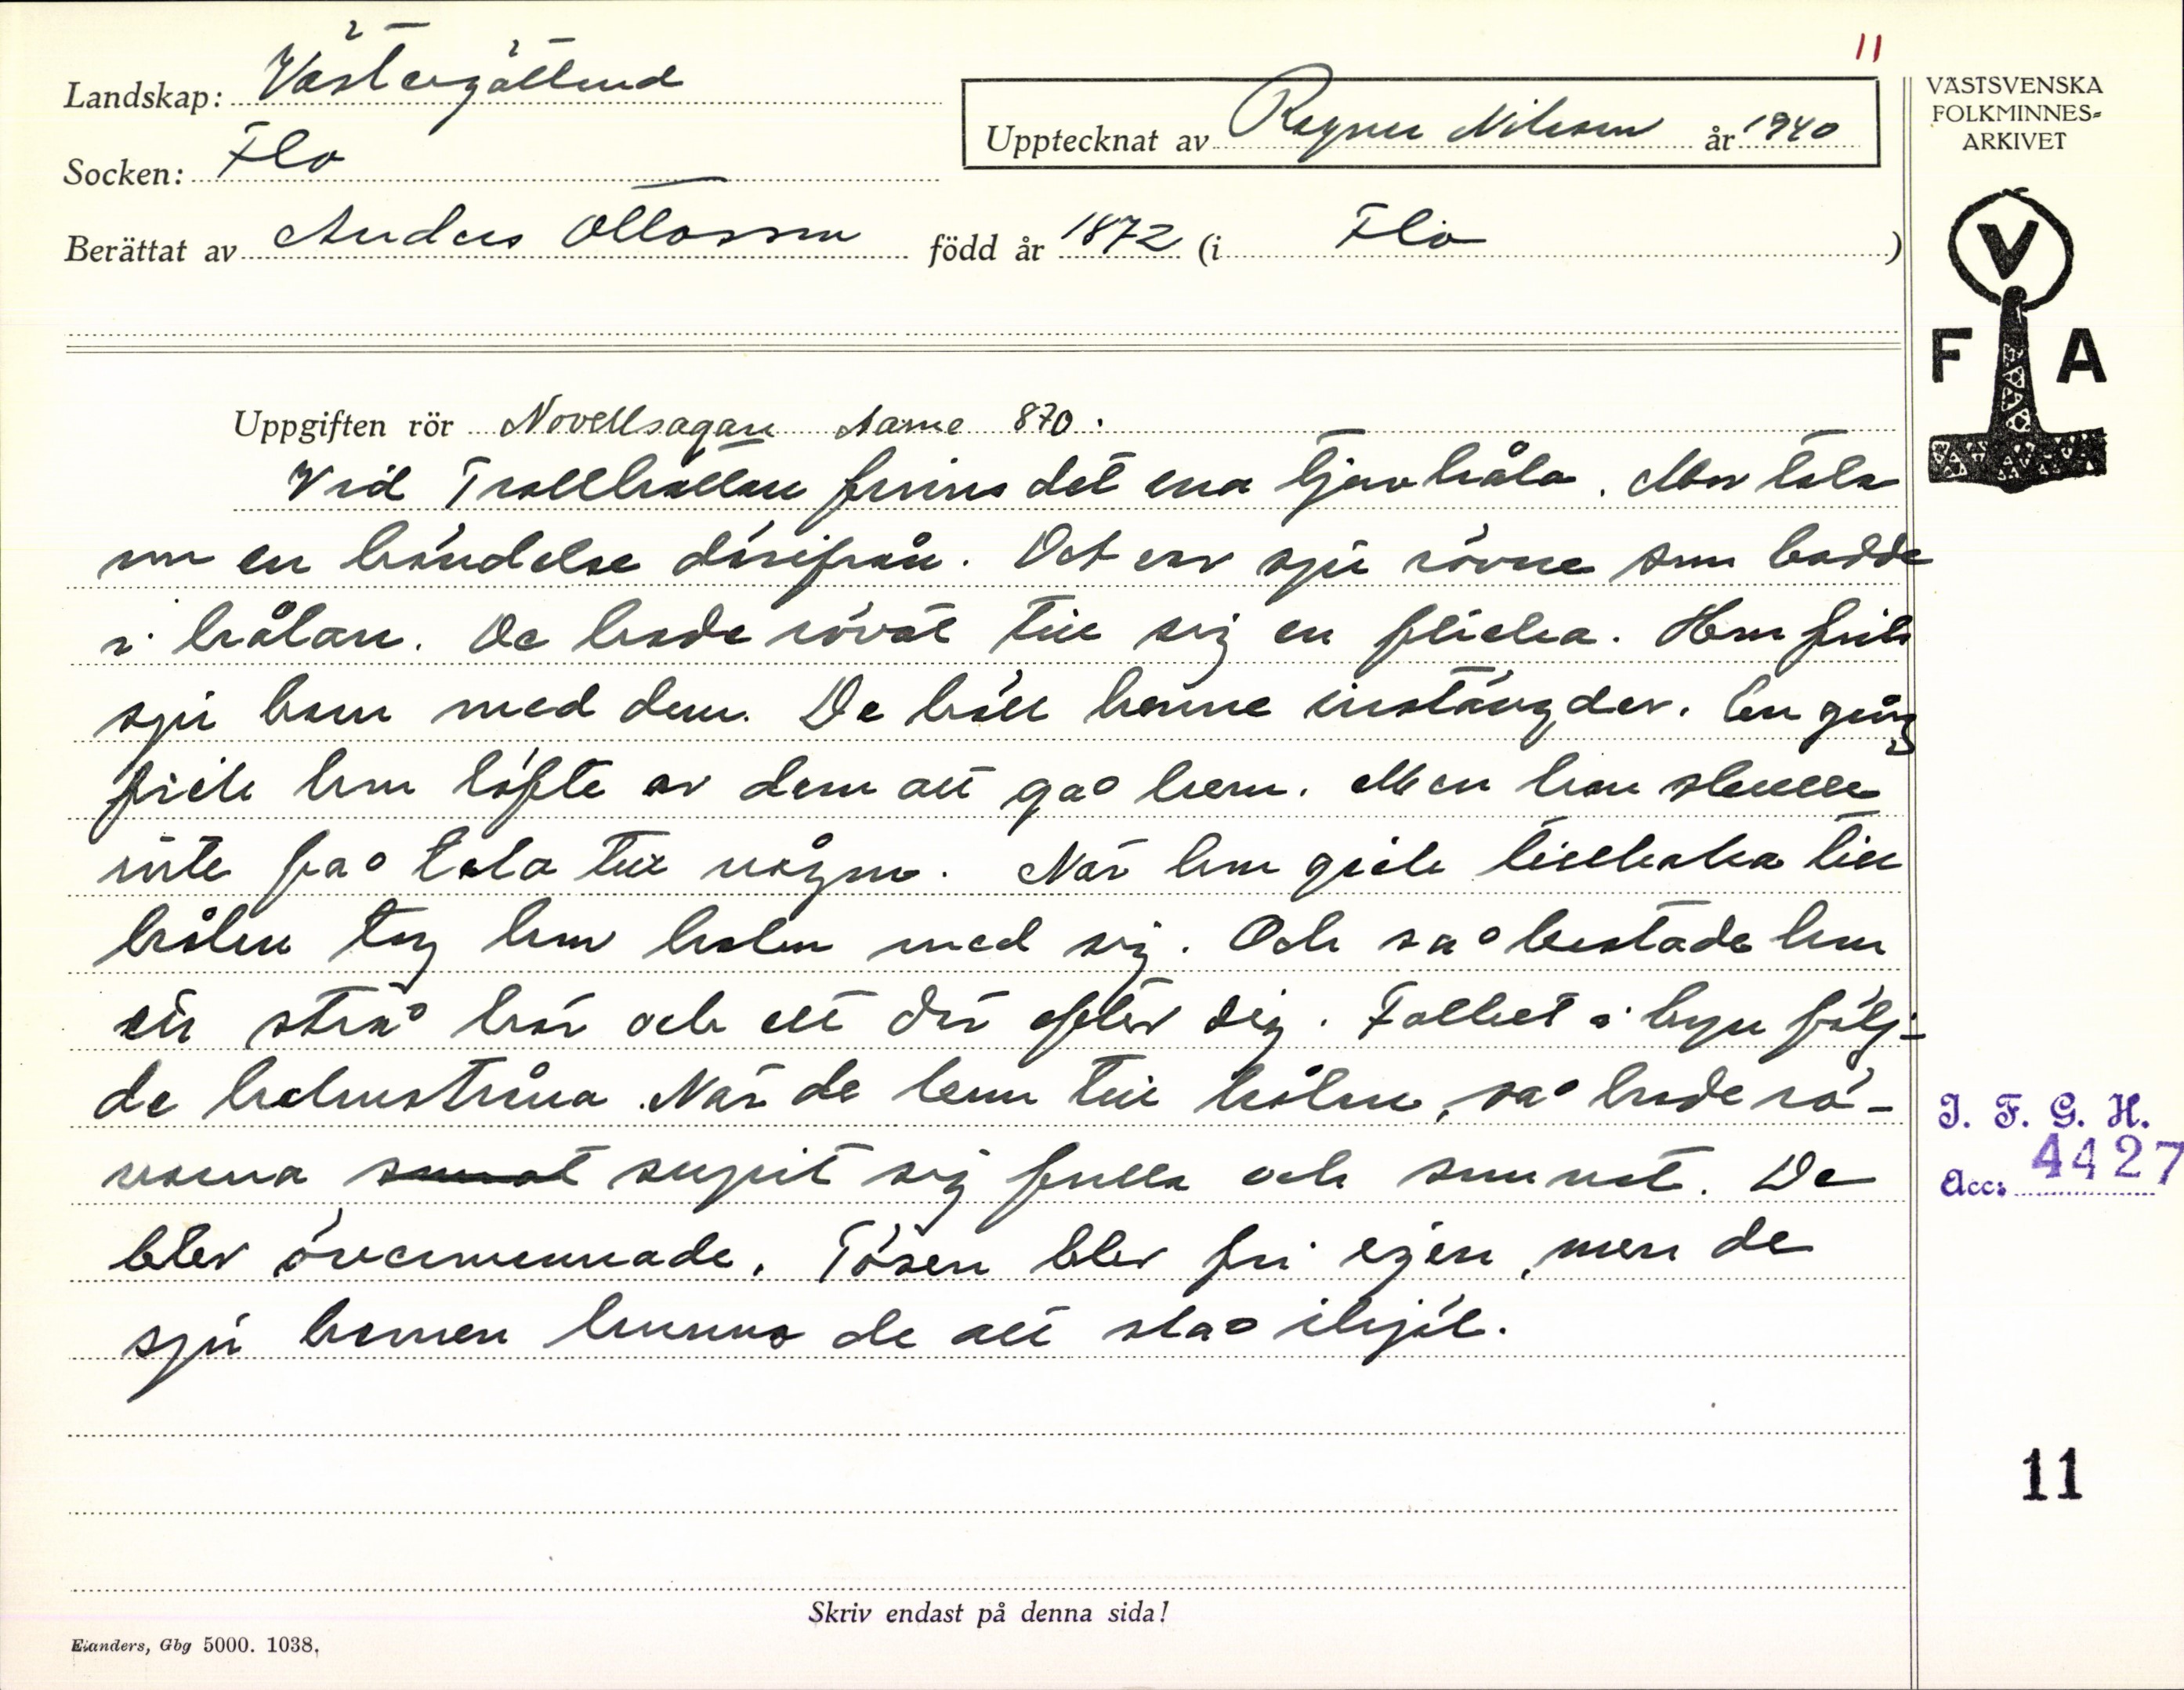 11
Landskap: Västergötland
Socken: Flo
Upptecknat av Ragnar Nilsson år 1940
Berättat av Anders Ottosson född år 1872 (i Flo)
VÄSTSVENSKA
FOLKMINNES-
ARKIVET
V
F A
Uppgiften rör Novellsagan Aarne 870.
Vid Trollhättan finns det ena tjuvhåla. Mor tala
om en händelse därifrån. Det var sju rövare som bodde
i hålan. De hade rövat till sig en flicka. Hon fick
sju barn med dem. De höll henne instängder. En gång
fick hon löfte av dem att gå hem. Men hon skulle
inte få tala till någon. När hon gick tillbaka till
hålan tog hon halm med sig. Och så kastade hon
ett strå här och ett där efter sig. Folket i byn följ-
de halmstråna. När de kom till hålan, så hade rö-
varna somnat supit sig fulla och somnat. De
blev övermannade. Tösen blev fri igen, men de
sju barnen kunna de att slå ihjäl.
I. F. G. H.
Acc: 4427
11
Skriv endast på denna sida!
Elanders, Gbg 5000. 1038.